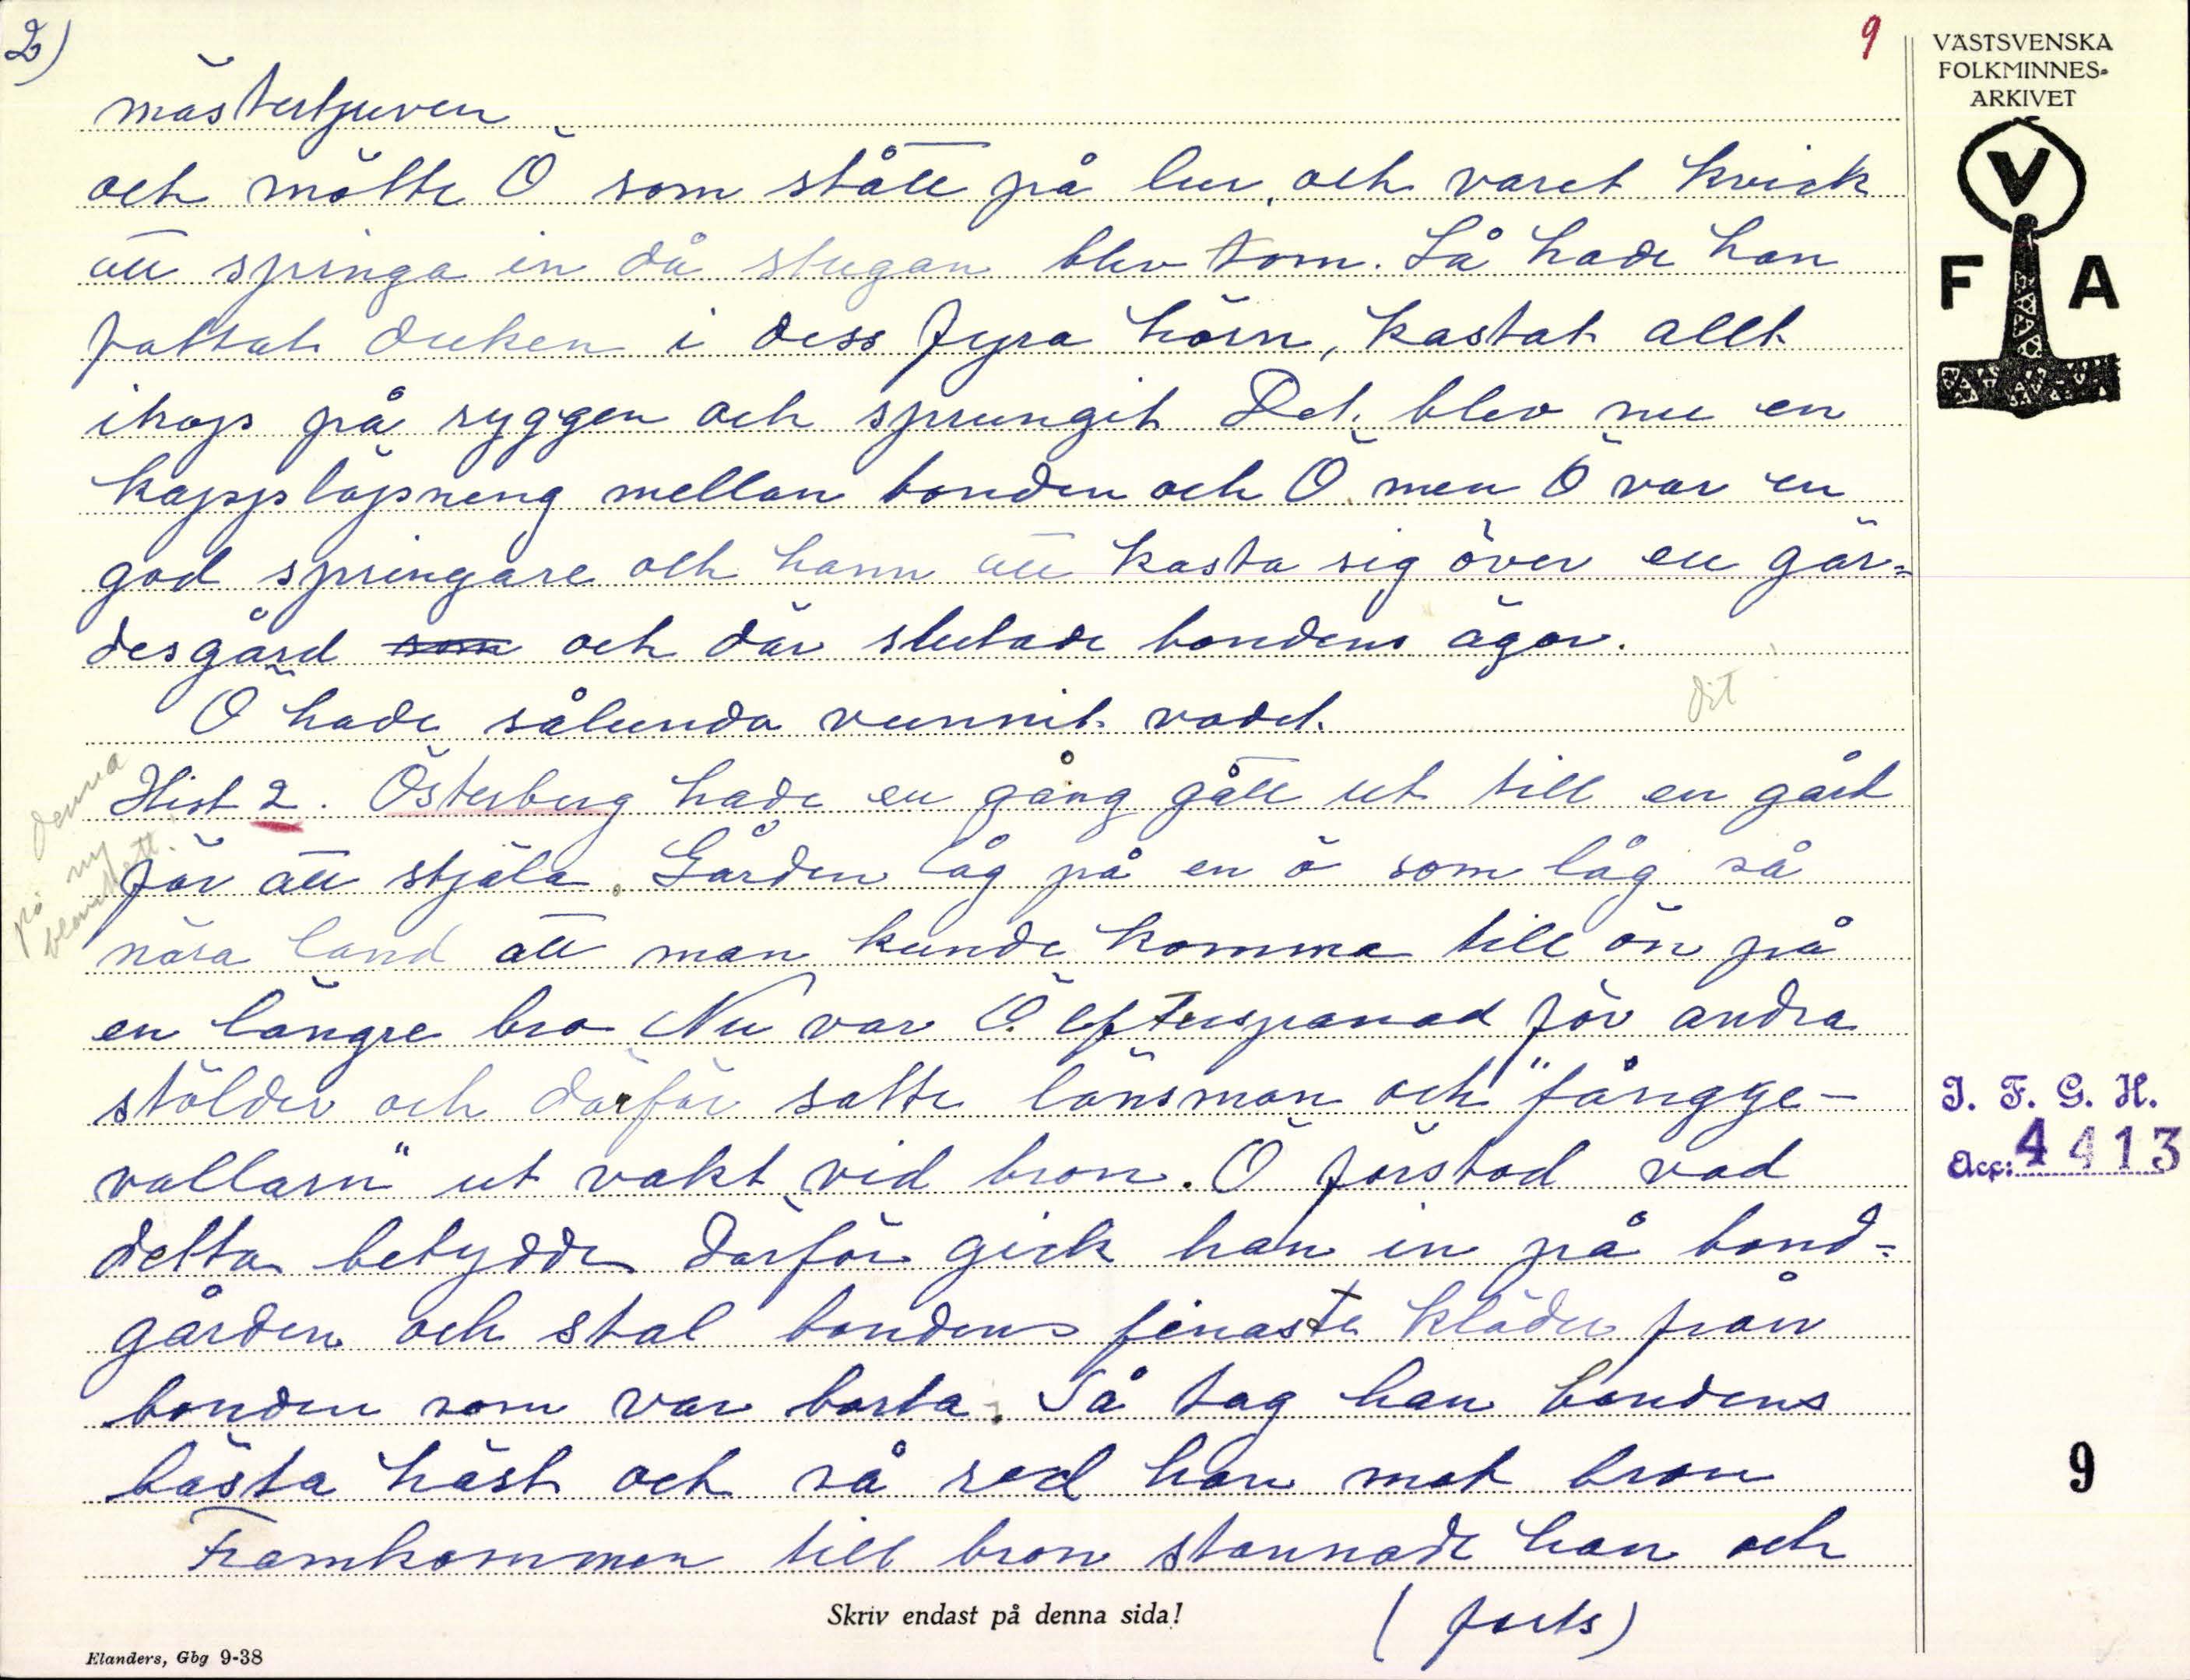 2)
9
mästertjuven
och mötte Ö som stått på lur, och varet kvick
att springa in då stugan blev tom. Så hade han
fattat duken i dess fyra hörn, kastat allt
ihop på ryggen och sprungit Det blev nu en
kapplöpning mellan bonden och Ö men Ö var en
god springare och hann att kasta sig över en gär=
desgård som och där slutade bondens ägor.
Ö hade sålunda vunnit vadet.
dit
Hist 2. Österberg hade en gång gått ut till en gård
för att stjäla. Gården låg på en ö som låg så
nära land att man kunde komma till ön på
en längre bro Nu var Ö. efterspanad för andra
stölder och därför satte länsman och "fångge-
vallarn" ut vakt vid bron. Ö förstod vad
detta betydde därför gick han in på bond=
gården och stal bondens finaste kläder från
bonden som var borta. Så tog han bondens
bästa häst och så red han mot bron
Framkommen till bron stannade han och
(forts)
denna
på ny
blankett.
Skriv endast på denna sida!
Elanders, Gbg 9-38
VÄSTSVENSKA
FOLKMINNES-
ARKIVET
V
F A
I. F. G. H.
Acc: 4413
9